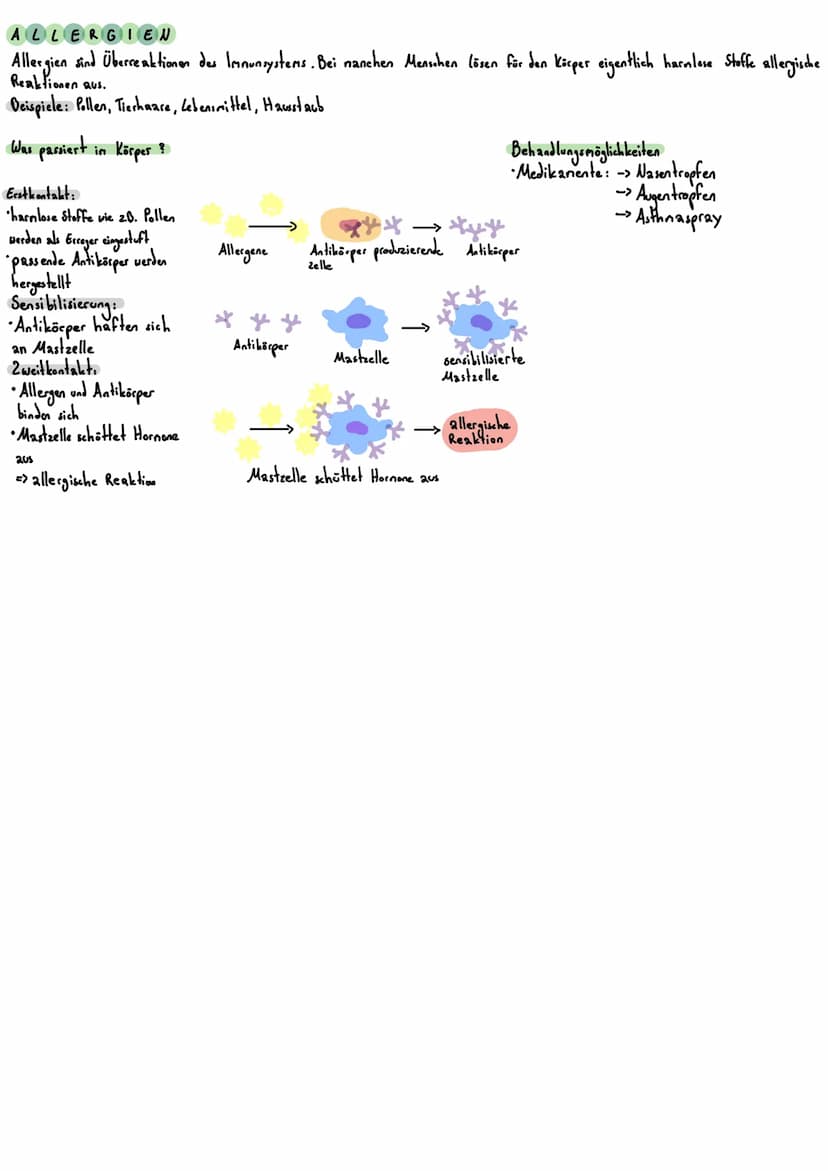 ALLERGIEN
Allergien sind Überreaktionen des Immunsystems. Bei manchen Menschen lösen für den Körper eigentlich harmlose Stoffe allergische
Reaktionen aus.
Beispiele: Pollen, Tierhaare, Lebensmittel, Hausstaub
Was passiert im Körper?
Erstkontakt:
·harmlose Stoffe wie z.B. Pollen
werden als Erreger eingestuft
·passende Antikörper werden
hergestellt
Sensibilisierung:
·Antikörper haften sich
an Mastzelle
Zweitkontakt:
·Allergen und Antikörper
binden sich
·Mastzelle schüttet Hormone
aus
=> allergische Reaktion
Allergene
Antikörper produzierende
Zelle
Antikörper
Antikörper
Mastzelle
sensibilisierte
Mastzelle
allergische
Reaktion
Mastzelle schüttet Hormone aus
Behandlungsmöglichkeiten
·Medikamente: -> Nasentropfen
-> Augentropfen
-> Asthmaspray